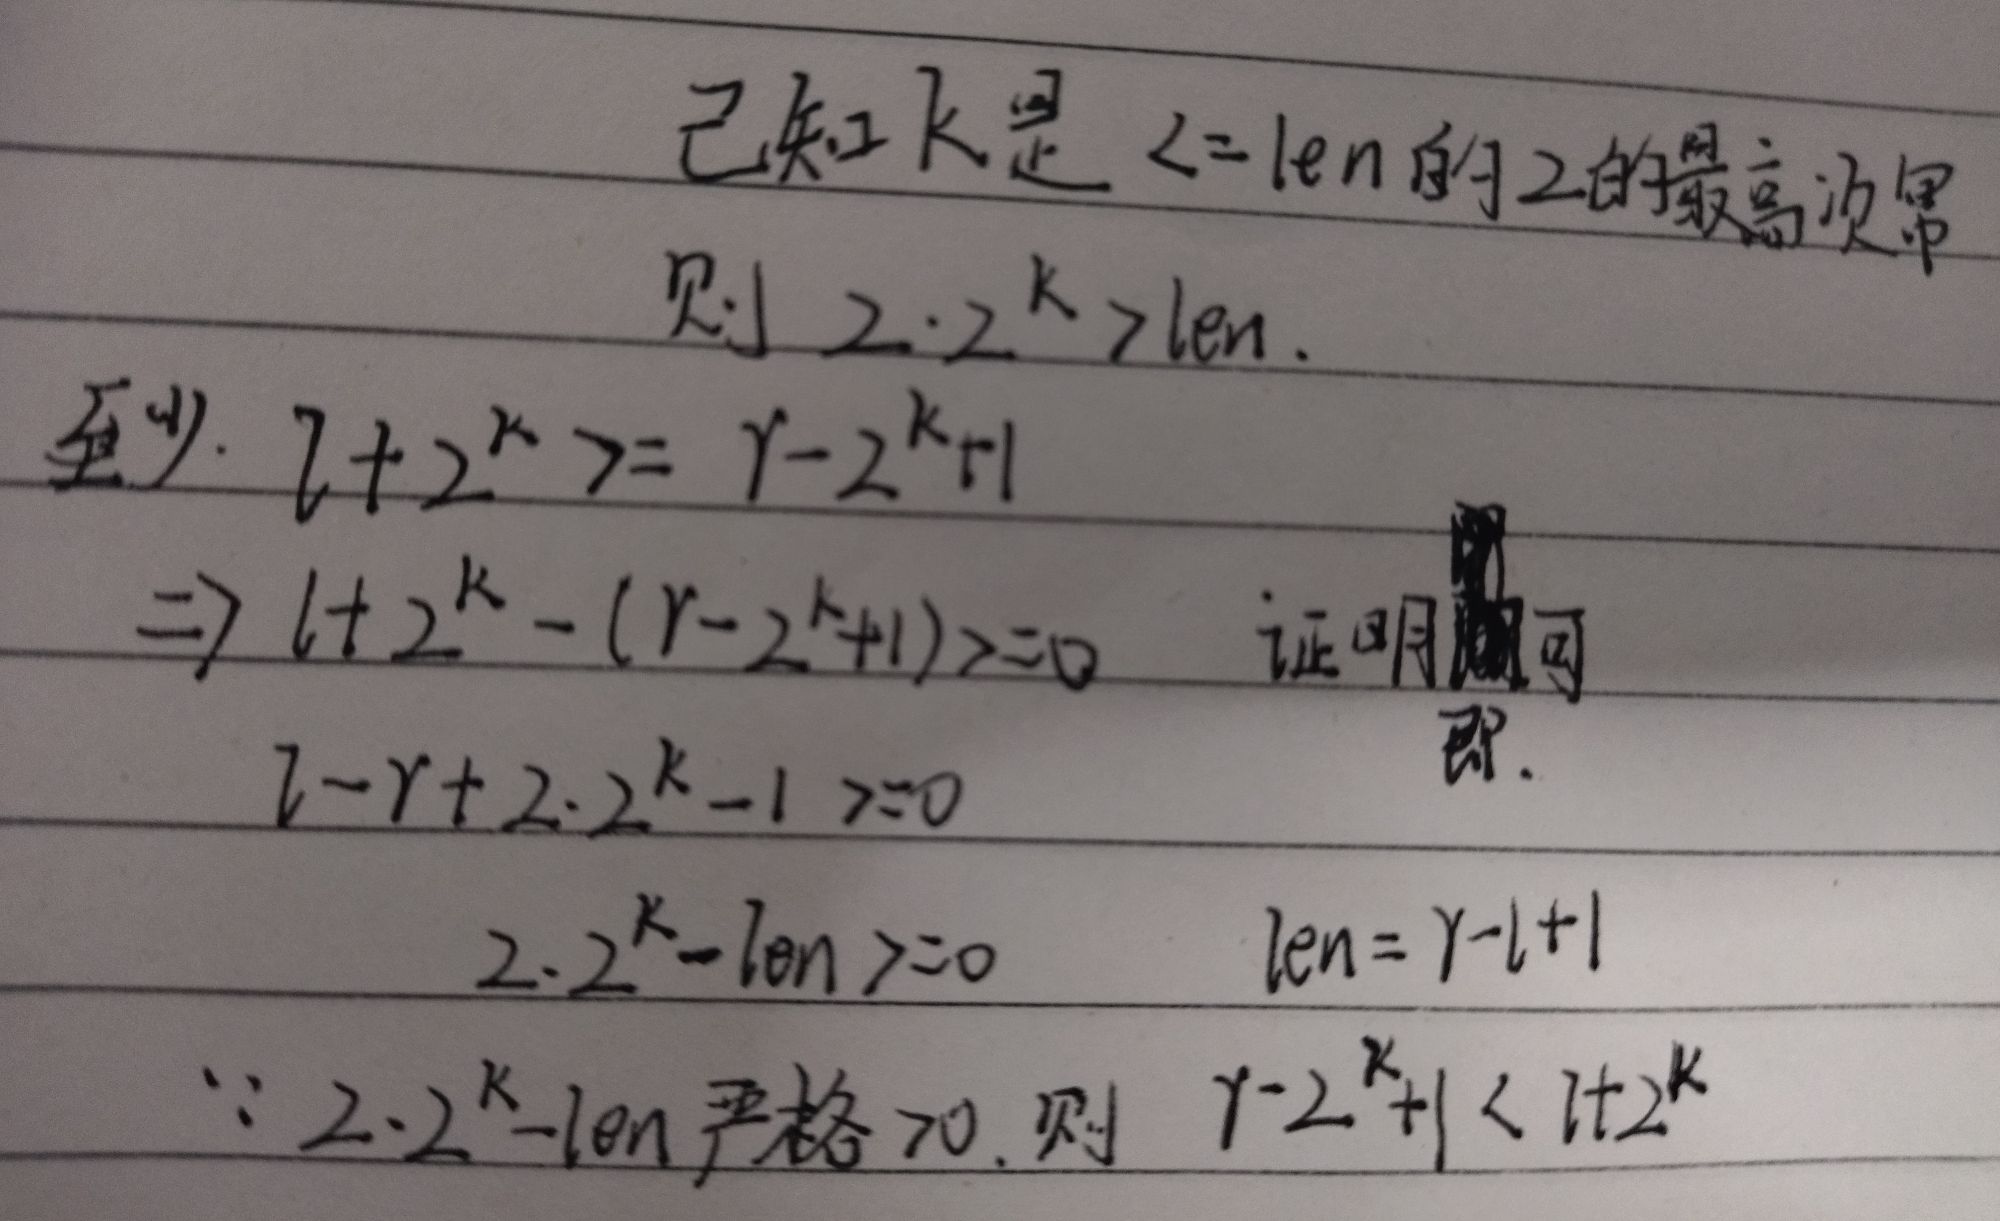 已知k是 <=len的2的最高次幂
则 2·2^k >len.
至少. l+2^k >= r-2^k+1
=> l+2^k-(r-2^k+1)>=0 证明可
即.
l-r+2·2^k-1 >=0
2·2^k-len>=0 len=r-l+1
∵ 2·2^k-len严格>0. 则 r-2^k+1 < l+2^k